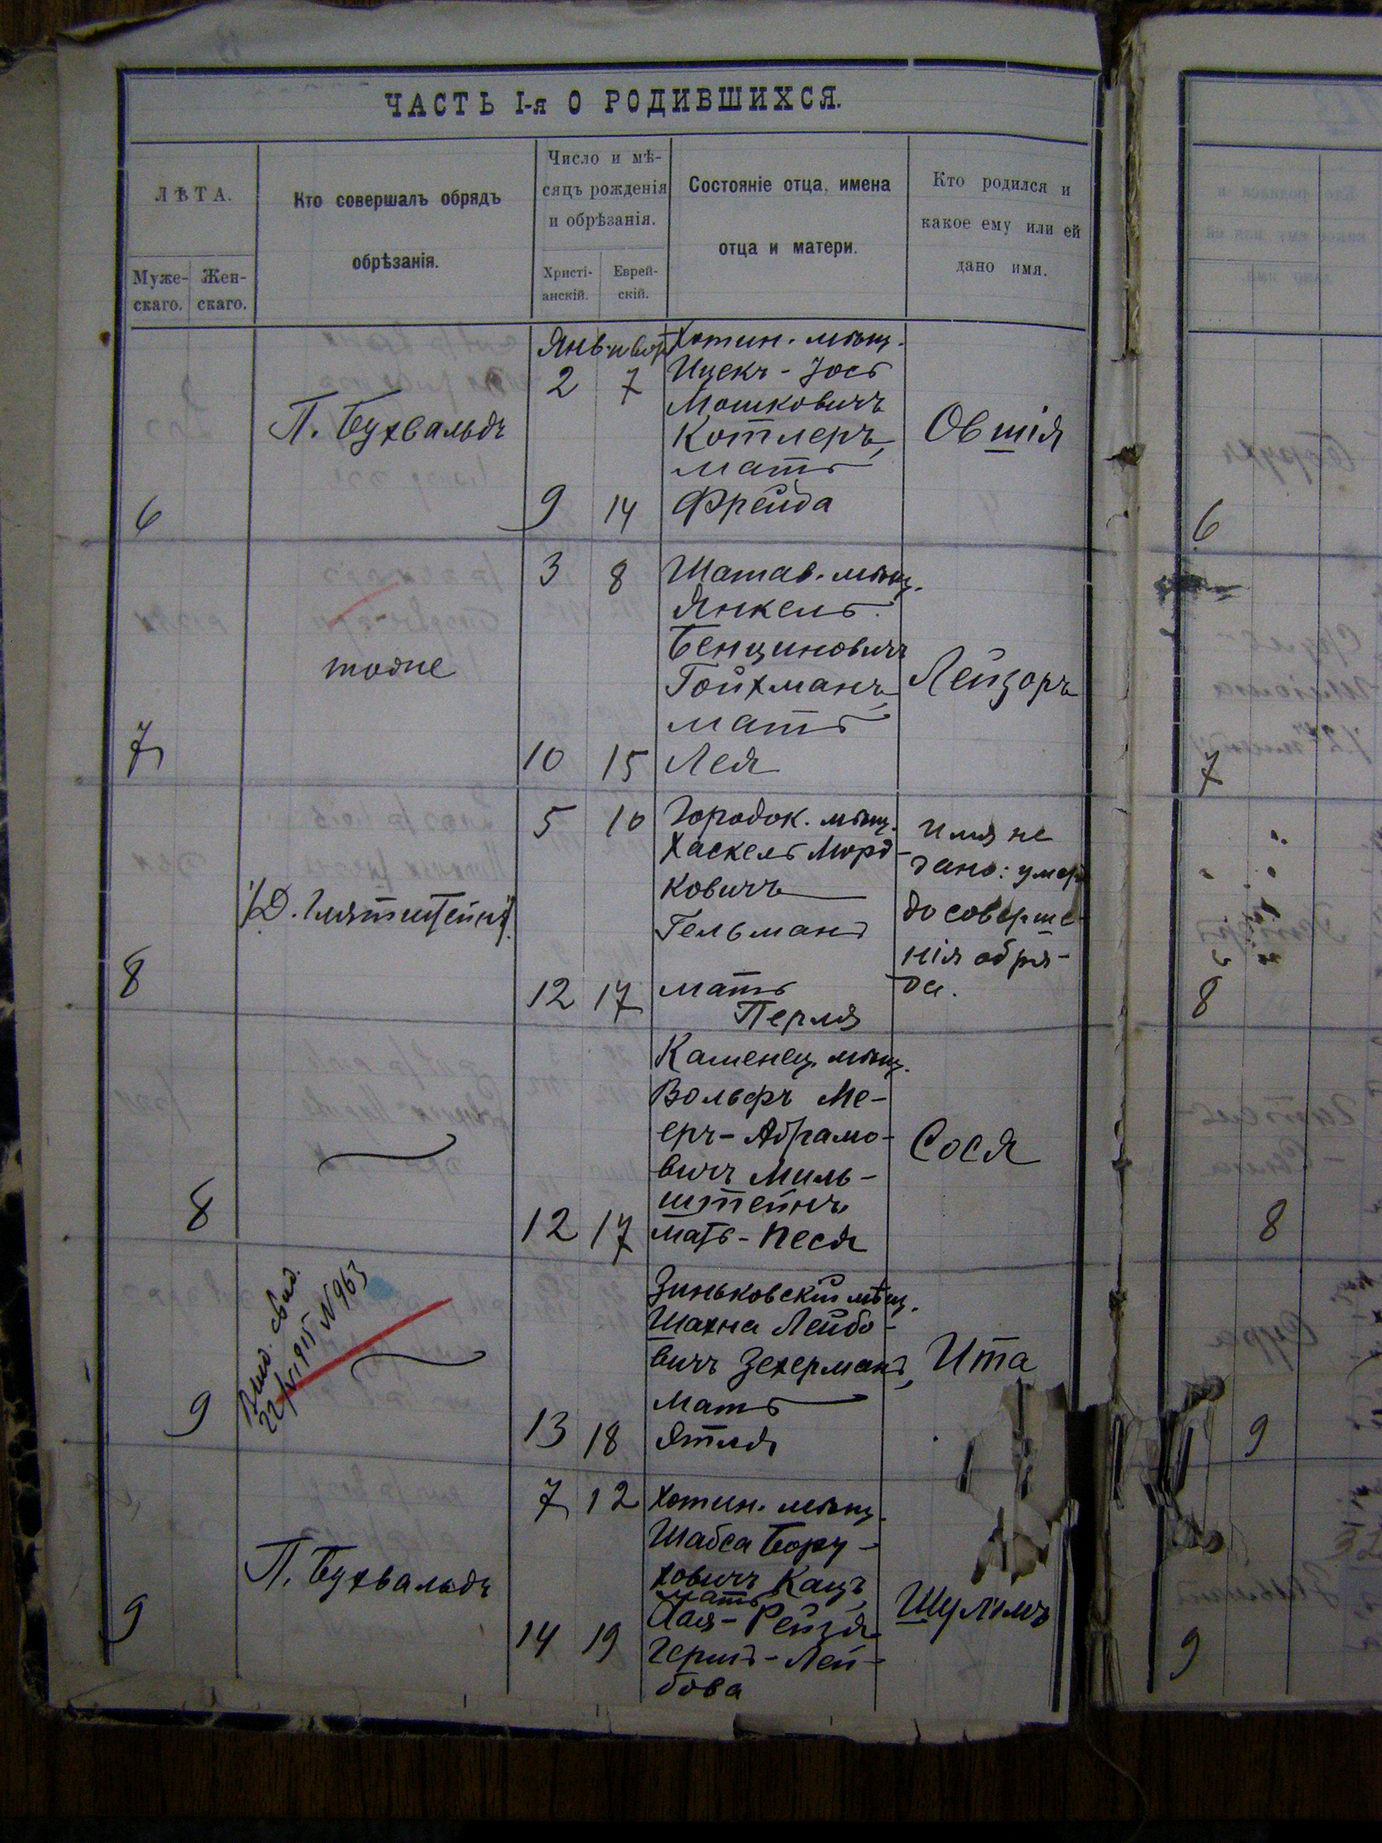 ЧАСТЬ I-я О РОДИВШИХСЯ.
ЛѢТА.
Муже-
скаго.
Жен-
скаго.
Кто совершалъ обрядъ
обрѣзанія.
Число и мѣ-
сяцъ рожденія
и обрѣзанія.
Христі-
анскій.
Еврей-
скій.
Состояніе отца, имена
отца и матери.
Кто родился и
какое ему или ей
дано имя.
6
П. Бухвальдъ
Январь
2 7
9 14
Хотин. мѣщ.
Ицекъ-Іось
Мошковичъ
Котлеръ,
мать
Фрейда
Овшія
7
тоже
3 8
10 15
Шатав. мѣщ.
Янкель
Бенциновичъ
Гойхманъ,
мать
Лея
Лейзоръ
8
Д. Глятштейнъ
5 10
12 17
Городок. мѣщ.
Хаскель Морд-
ковичъ
Гельманъ
мать
Перля
имя не
дано: умеръ
до соверше-
нія обря-
да.
8
12 17
Каменец. мѣщ.
Вольфъ Ме-
еръ-Абрамо-
вичъ Миль-
штейнъ
мать-Песя
Сося
9
свид.
22/VI 915 N 963
13 18
Зиньковскій мѣщ.
Шахна Лейбо-
вичъ Зехерманъ,
мать
Ятля
Ита
9
П. Бухвальдъ
7 12
14 19
Хотин. мѣщ.
Шабса Бору-
ховичъ Кацъ,
мать
Хая-Рейзя
Гершъ-Лей-
бова
Шулимъ
6
7
8
8
9
9